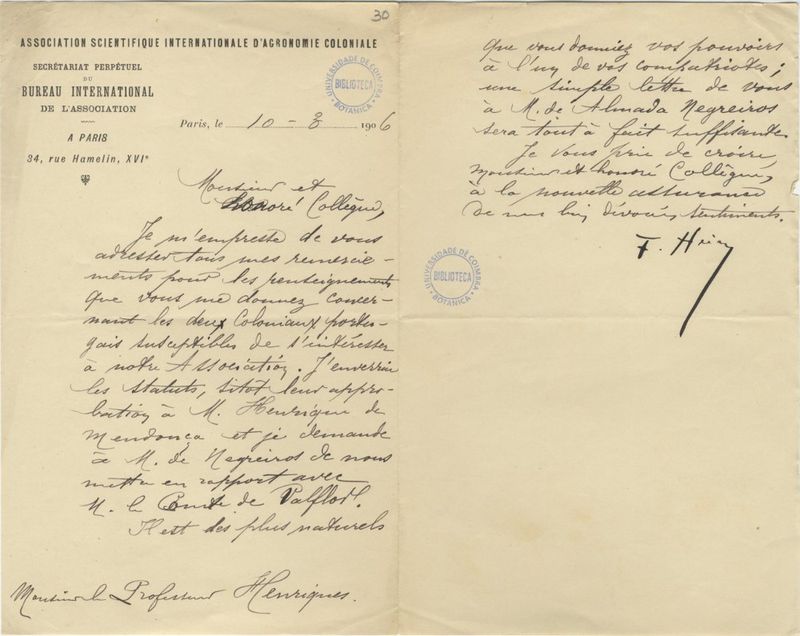 30
ASSOCIATION SCIENTIFIQUE INTERNATIONALE D'AGRONOMIE COLONIALE
SECRÉTARIAT PERPÉTUEL
DU
BUREAU INTERNATIONAL
DE L'ASSOCIATION
A PARIS
34, rue Hamelin, XVIe
UNIVERSIDADE DE COIMBRA
BIBLIOTECA
BOTANICA
Paris, le 10 - 8 1906
Monsieur et
honoré Collègue,
Je m'empresse de vous
adresser tous mes remercie-
ments pour les renseignements
que vous me donnez concer-
nant les deux Coloniaux portu-
gais susceptibles de s'intéresser
à notre Association. J'enverrai
les statuts, sitôt leur appro-
bation à M. Henrique de
Mendonça et je demande
à M. de Negreiros de nous
mettre en rapport avec
M. le Comte de Valflor.
Il est des plus naturels
Monsieur le Professeur Henriques.
que vous donniez vos pouvoirs
à l'un de vos compatriotes;
une simple lettre de vous
à M. de Almada Negreiros
sera tout à fait suffisante.
Je vous prie de croire,
Monsieur et honoré Collègue,
à la nouvelle assurance
de mes bien dévoués sentiments.
F.
UNIVERSIDADE DE COIMBRA
BIBLIOTECA
BOTANICA